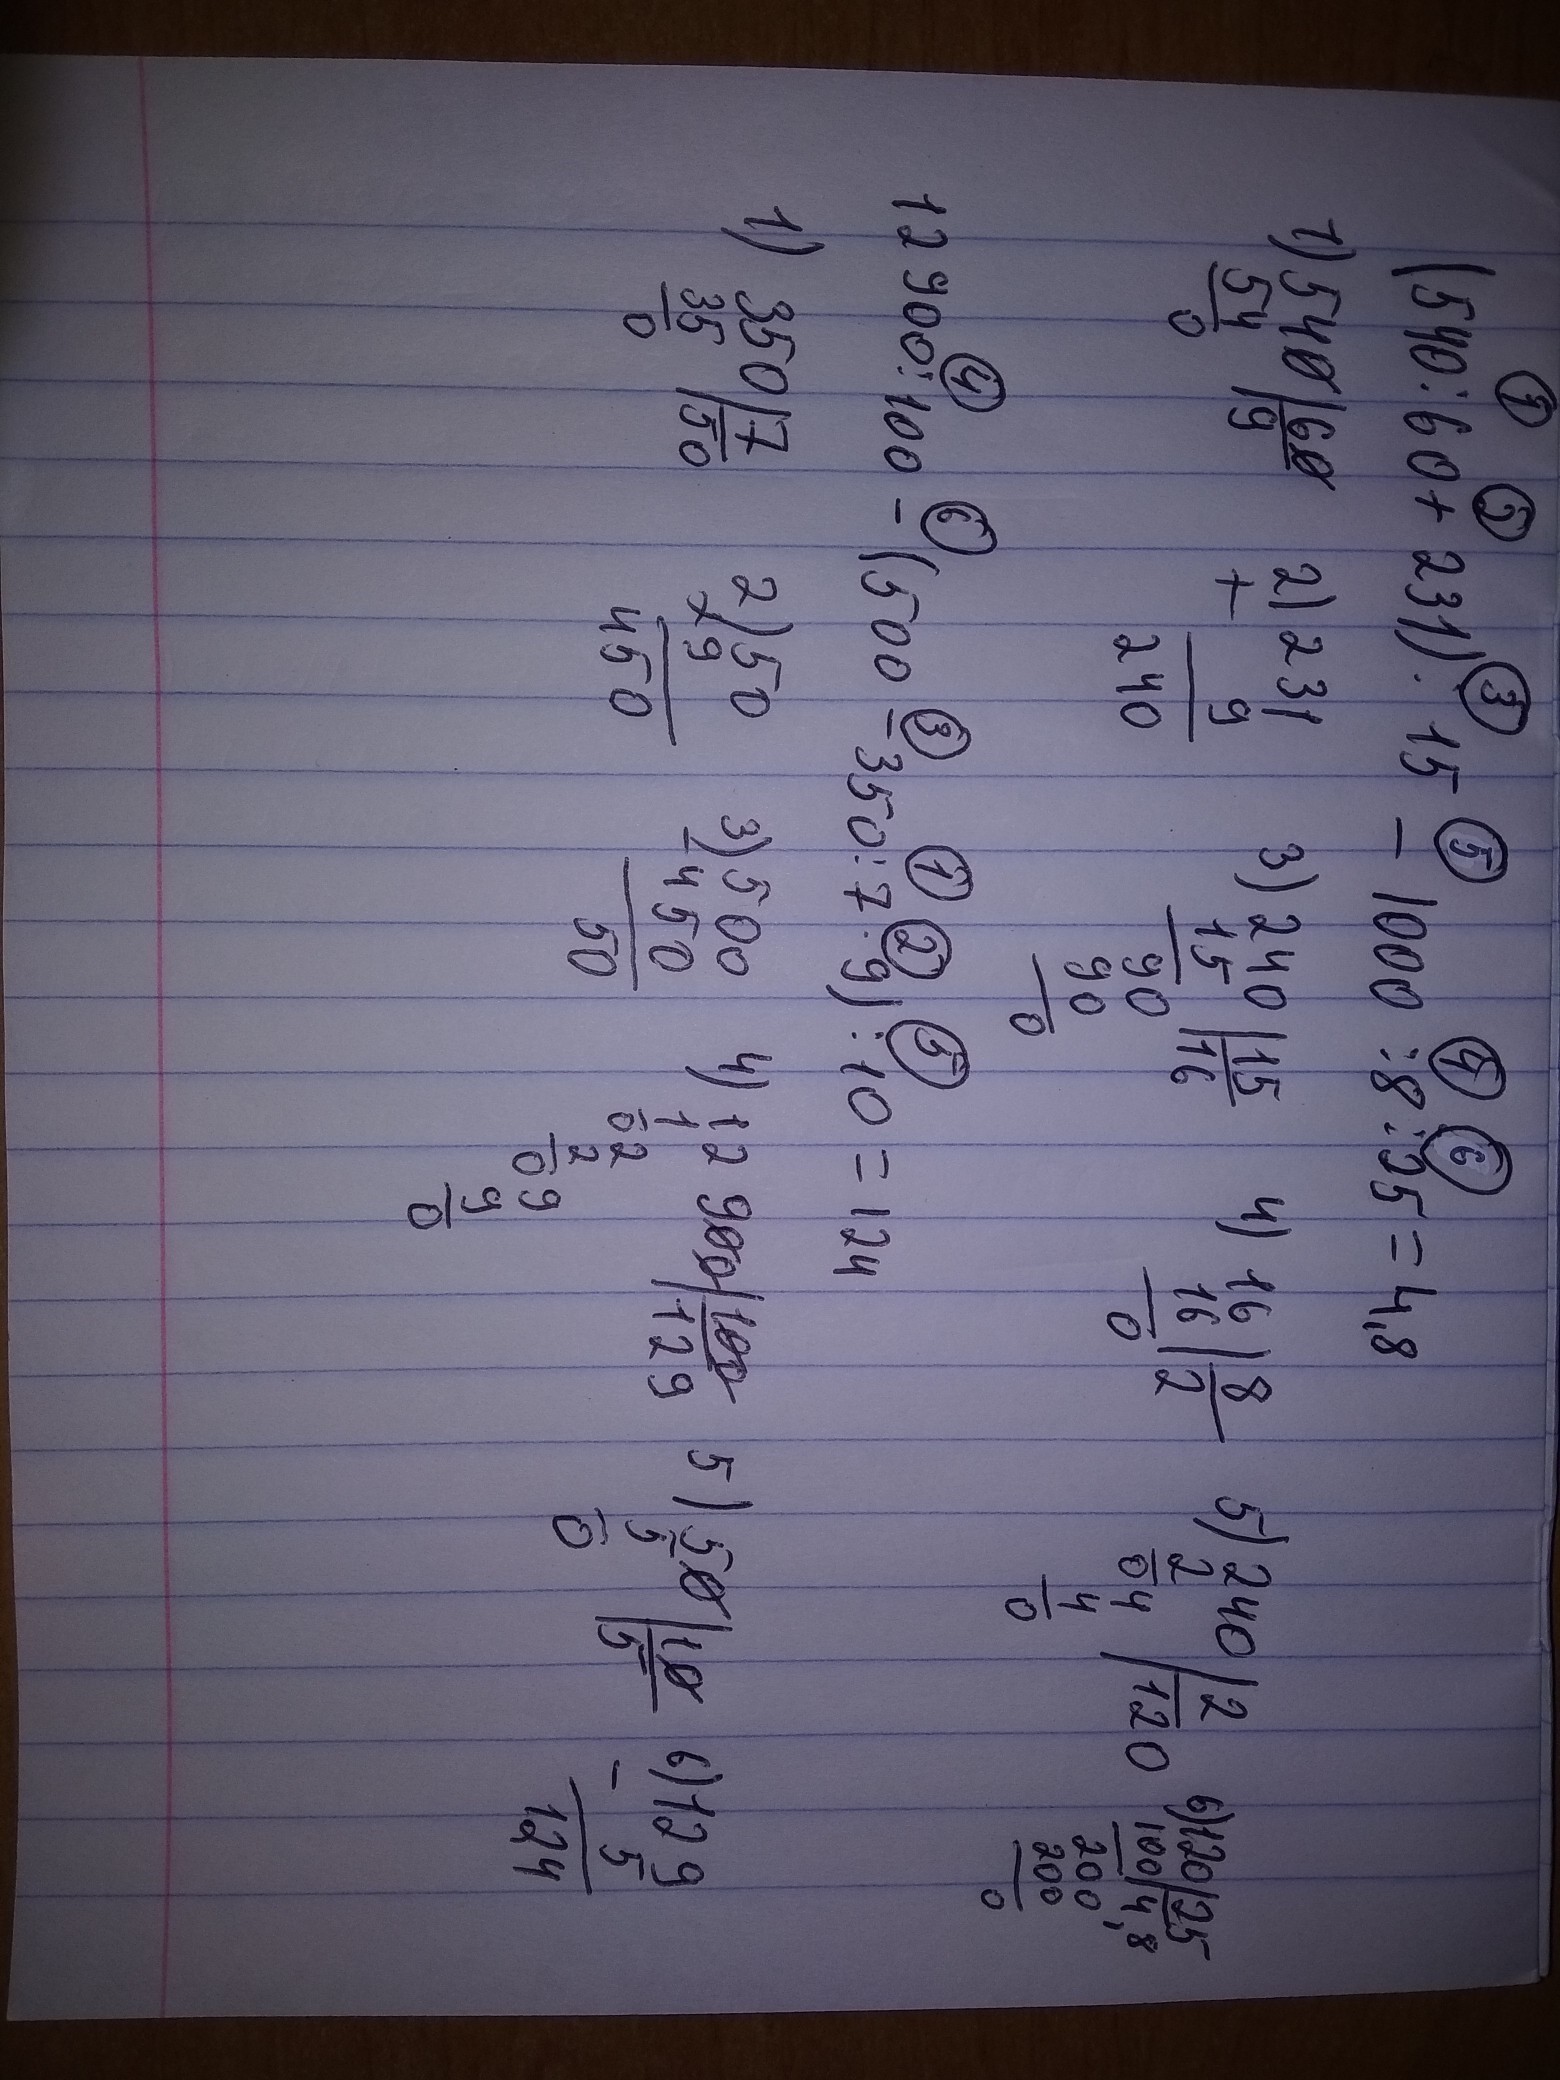 ① ② ③ ⑤ ④ ⑥
(540:60+231):15 – 1000:8·25=4,8
1) 540|60 2) 231 3) 240|15 4) 16|8 5) 240|2 6) 120|25
54 |9 + 9 15 |16 16|2 2 |120 100|4,8
0 240 90 0 04 200
90 4 200
0 0 0
④ ⑥ ③ ① ② ⑤
12 900:100 – (500 – 350:7·9):10 = 124
1) 350|7 2) 50 3) 500 4) 12 900|100 5) 50|10 6) 129
35 |50 ×9 –450 1 |129 5 |5 – 5
0 450 50 02 0 124
2
09
9
0